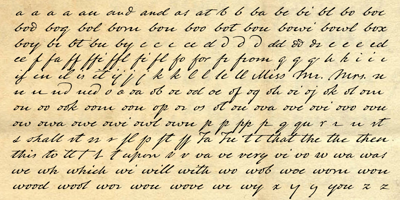 a a a a an and and as at b b ba be bi bl bo boc
bod bog bol born bou boo bot bou bowi bowl box
boy bi bt bu by c c c c cd d d d dd do e e e ed
ee f fa ff ffi ffl fi fl fo for fr from g g g h h i i
if in il is it ij j k k l l le ll Miss Mr. Mrs n
n n nd nd o o oa ob oc od oe of og oh oi oj ok ol om
on oo ook oom oon op or os ot ou ova ove ovi ovo ovu
ow owa owe owi owl own p p pp p q qu r r r s st
s shall st ss s fl ft t Ta Tu tt that the the then
this to tt t t upon v v va ve very vi vo w wa was
we wh which wi will with wo wob woe worn wou
wood wool wor wou wove wi wy x y y you z z